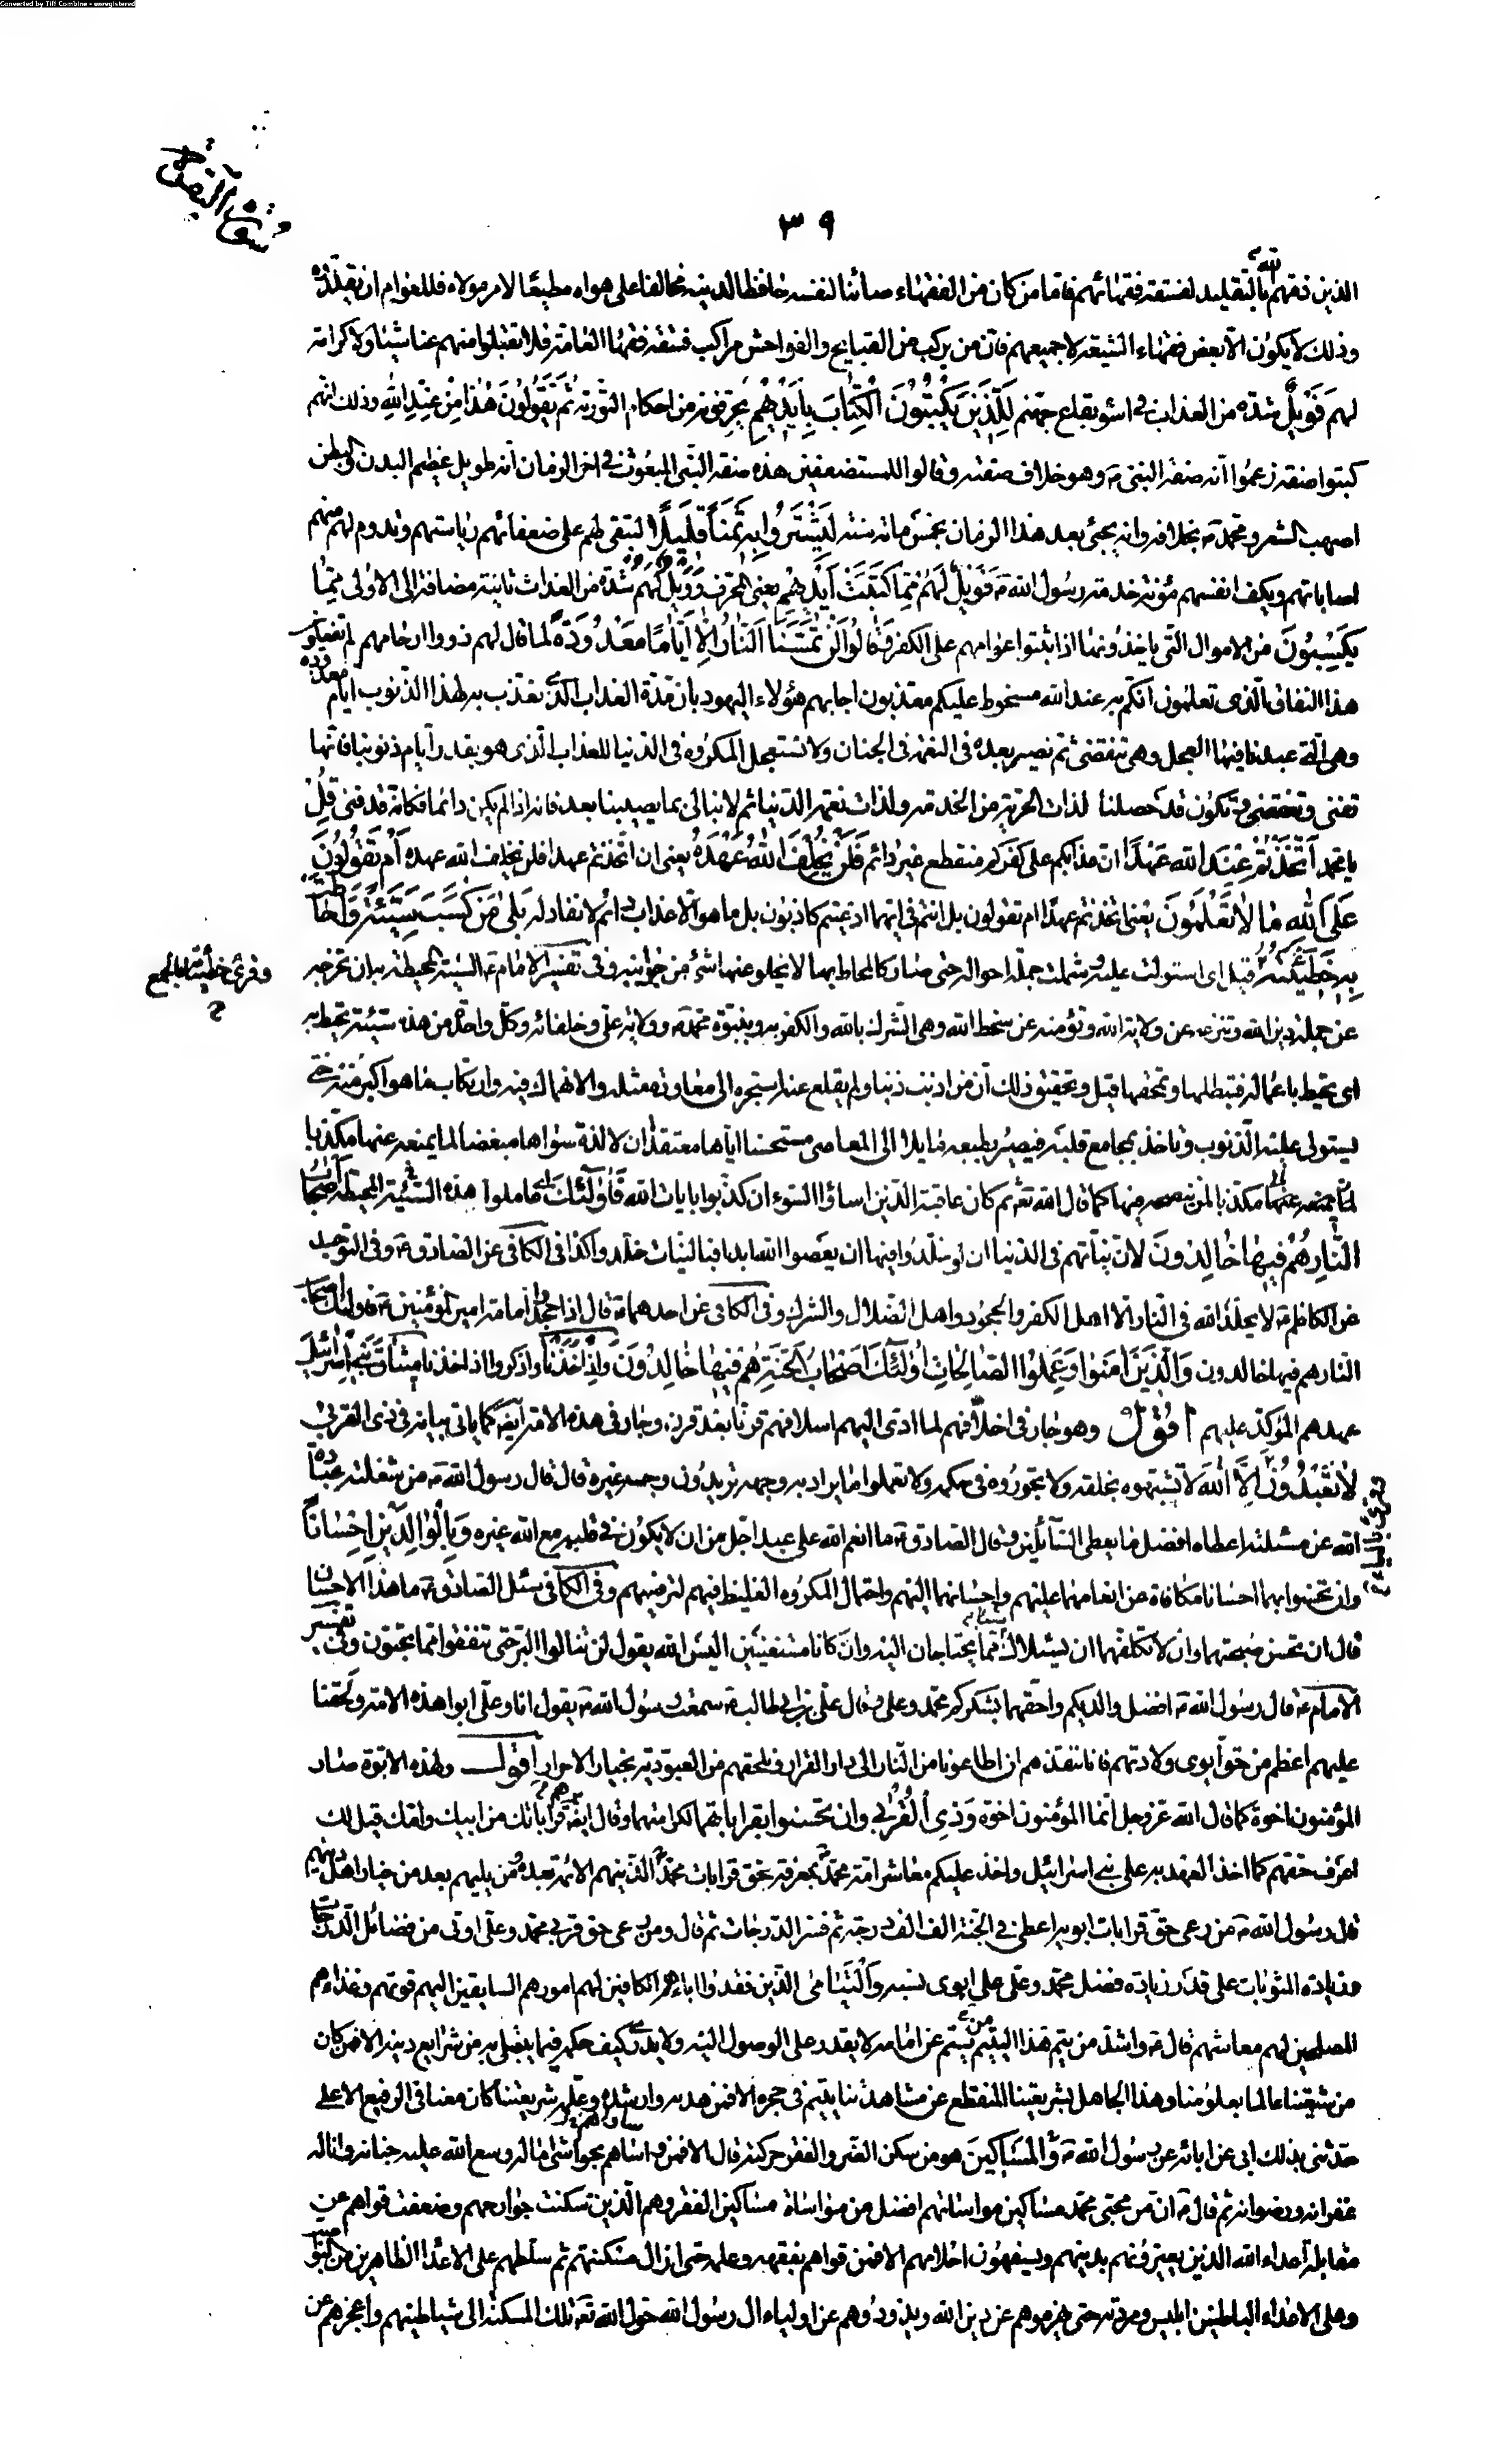 Converted by Tiff Combine - unregistered
٣٩
الذين ذمهم الله بالتقليد لفسقة فقهائهم فاما من كان من الفقهاء صائنا لنفسه حافظا لدينه مخالفا على هواه مطيعا لامر مولاه فللعوام ان يقلدوه
وذلك لا يكون الا بعض فقهاء الشيعة لا جميعهم فان من يركب من القبايح والفواحش مراكب فسقة فقهاء العامة فلا تقبلوا منهم عنا شيئا ولا كرامة
لهم فَوَيْلٌ شدة من العذاب في اسوء بقاع جهنم لِلَّذِينَ يَكْتُبُونَ الْكِتَابَ بِأَيْدِيهِمْ يحرفونه من احكام التورية ثُمَّ يَقُولُونَ هٰذَا مِنْ عِنْدِ اللهِ وذلك انهم
كتبوا صفة زعموا انه صفة النبي ص وهو خلاف صفته وقالوا للمستضعفين هذه صفة النبي المبعوث في اخر الزمان انه طويل عظيم البدن والبطن
اصهب الشعر ومحمد ص بخلافه وانه يجئ بعد هذا الزمان بخمس مائة سنة لِيَشْتَرُوا بِهِ ثَمَنًا قَلِيلًا لتبقى لهم على ضعفائهم رياستهم وتدوم لهم منهم
اصاباتهم ويكف انفسهم مؤنة خدمة رسول الله ص فَوَيْلٌ لَهُمْ مِمَّا كَتَبَتْ أَيْدِيهِمْ يعني المحرف وَوَيْلٌ لَهُمْ شدة من العذاب ثانية مضافة الى الاولى مِمَّا
يَكْسِبُونَ من الاموال التي ياخذونها اذا ثبتوا عوامهم على الكفر وَقَالُوا لَنْ تَمَسَّنَا النَّارُ إِلَّا أَيَّامًا مَعْدُودَةً لما قال لهم ذووا ارحامهم لم تفعلون
هذا النفاق الذي تعلمون انكم به عند الله مسخوط عليكم معذبون اجابهم هؤلاء اليهود بان مدة العذاب الذي نعذب به لهذا الذنوب ايام معدودة
وهي التي عبدنا فيها العجل وهي تنقضي ثم نصير بعده في النعمة في الجنان ولا نستعجل المكروه في الدنيا للعذاب الذي هو بقدر ايام ذنوبنا فانها
تفنى وتنقضي ونكون قد حصلنا لذات الحرية من الخدمة ولذات نعمة الدنيا ثم لا نبالي بما يصيبنا بعد فانه اذا لم يكن دائما فكانه قد فنى قُلْ
يا محمد أَتَّخَذْتُمْ عِنْدَ اللهِ عَهْدًا ان عذابكم على كفركم منقطع غير دائم فَلَنْ يُخْلِفَ اللهُ عَهْدَهُ يعني ان اتخذتم عهدا فلن يخلف الله عهده أَمْ تَقُولُونَ
عَلَى اللهِ مَا لَا تَعْلَمُونَ يعني اتخذتم عهدا ام تقولون بل انتم في ايهما ادعيتم كاذبون بل ما هو الا عذاب دائم لا نفاد له بَلَىٰ مَنْ كَسَبَ سَيِّئَةً وَأَحَاطَتْ
بِهِ خَطِيئَتُهُ قيل اي استولت عليه وشملت جملة احواله حتى صار كالمحاط بها لا يخلو عنها شئ من جوانبه وفي تفسير الامام ع السيئة المحيطة به ان تخرجه
وقرئ خطيئاته بالجمع
عن جملة دين الله وتنزعه عن ولاية الله وتؤمنه عن سخط الله وهي الشرك بالله والكفر به وبنبوة محمد ص وولاية علي وخلفائه وكل واحد من هذه سيئة تحيط به
اي تحيط باعماله فتبطلها وتمحقها قيل وتحقيق ذلك ان من اذنب ذنبا ولم يقلع عنه استجره الى معاودة مثله والانهماك فيه وارتكاب ما هو اكبر منه حتى
يستولي عليه الذنوب وتاخذ بمجامع قلبه فيصير بطبعه مايلا الى المعاصي مستحسنا اياها معتقدا ان لا لذة سواها مبغضا لما يمنعه عنها مكذبا
كما قال الله تع ثم كان عاقبة الذين اساؤا السوء ان كذبوا بايات الله فَأُولٰئِكَ عاملوا هذه السيئة المحيطة أَصْحَابُ
النَّارِ هُمْ فِيهَا خَالِدُونَ لان نياتهم في الدنيا ان لو خلدوا فيها ان يعصوا الله ابدا فبالنيات خلدوا كذا في الكافي عن الصادق ع وفي التوحيد
عن الكاظم ع لا يخلد الله في النار الا اهل الكفر والجحود واهل الضلال والشرك وفي الكافي عن احدهما ع قال اذا جحدوا امامة امير المؤمنين ع فاولئك اصحاب
النار هم فيها خالدون وَالَّذِينَ آمَنُوا وَعَمِلُوا الصَّالِحَاتِ أُولٰئِكَ أَصْحَابُ الْجَنَّةِ هُمْ فِيهَا خَالِدُونَ وَإِذْ أَخَذْنَا واذكروا اذ اخذنا مِيثَاقَ بَنِي إِسْرَائِيلَ
عهدهم المؤكد عليهم اقول وهو جار في اخلافهم لما ادى اليهم اسلافهم قرنا بعد قرن وجار في هذه الامة ايضا كما ياتي بيانه في ذي القربى
لَا تَعْبُدُونَ إِلَّا اللهَ لا تشبهوه بخلقه ولا تجوروه في حكمه ولا تعملوا ما يراد به وجهه تريدون وجه غيره قال قال رسول الله ص من شغلته عبادة
الله عن مسئلته اعطاه افضل ما يعطي السائلين وقال الصادق ع ما انعم الله على عبد اجل من ان لا يكون في قلبه مع الله غيره وَبِالْوَالِدَيْنِ إِحْسَانًا
وان تحسنوا بهما احسانا مكافاة عن انعامهما عليهم واحسانهما اليهم واحتمال المكروه الغليظ فيهم لترفيههم وفي الكافي سئل الصادق ع ما هذا الاحسان
قال ان تحسن صحبتهما وان لا تكلفهما ان يسئلاك شيئا مما يحتاجان اليه وان كانا مستغنيين اليس الله يقول لن تنالوا البر حتى تنفقوا مما تحبون وفي تفسير
الامام ع قال رسول الله ص افضل والديكم واحقهما بشكركم محمد وعلي وقال علي بن ابي طالب ع سمعت رسول الله ص يقول انا وعلي ابوا هذه الامة ولحقنا
عليهم اعظم من حق ابوي ولادتهم فانا ننقذهم ان اطاعونا من النار الى دار القرار ونلحقهم من العبودية بخيار الاحرار اقول ولهذه الابوة صار
المؤمنون اخوة كما قال الله عز وجل انما المؤمنون اخوة وَذِي الْقُرْبَىٰ وان تحسنوا بقراباتهما لكرامتهما وقال ايضا هم قراباتك من ابيك وامك قيل لك
اعرف حقهم كما اخذ العهد به على بني اسرائيل واخذ عليكم معاشر امة محمد بمعرفة حق قرابات محمد الذين هم الائمة بعده ومن يليهم بعد من خيار اهل دينهم
قال رسول الله ص من رعى حق قرابات ابويه اعطي في الجنة الف الف درجة ثم فسر الدرجات ثم قال ومن رعى حق قربى محمد وعلي اوتي من فضائل الدرجات
وزيادة المثوبات على قدر زيادة فضل محمد وعلي على ابوي نسبه وَالْيَتَامَىٰ الذين فقدوا اباءهم الكافين لهم امورهم السايقين اليهم قوتهم وغذاءهم
المصلحين لهم معاشهم قال ع واشد من يتم هذا اليتيم من يتم عن امامه لا يقدر على الوصول اليه ولا يدري كيف حكمه فيما يبتلى به من شرايع دينه الا فمن كان
من شيعتنا عالما بعلومنا وهذا الجاهل بشريعتنا المنقطع عن مشاهدتنا يتيم في حجره الا فمن هداه وارشده وعلمه شريعتنا كان معنا في الرفيع الاعلى
حدثني بذلك ابي عن ابائه عن رسول الله ص وَالْمَسَاكِينَ هو من سكن الضر والفقر حركته قال الا فمن واساهم بحواشي ماله وسع الله عليه جنانه واناله
غفرانه ورضوانه ثم قال ع ان من محبي محمد مساكين مواساتهم افضل من مواساة مساكين الفقر وهم الذين سكنت جوارحهم وضعفت قواهم عن
مقابلة اعداء الله الذين يعيرونهم بدينهم ويسفهون احلامهم الا فمن قواهم بفقهه وعلمه حتى ازال مسكنتهم ثم سلطهم على الاعداء الظاهرين من النواصب
وعلى الاعداء الباطنين ابليس ومردته حتى يهزموهم عن دين الله ويذودوهم عن اولياء ال رسول الله حول الله تع تلك المسكنة الى شياطينهم واعجزهم عن